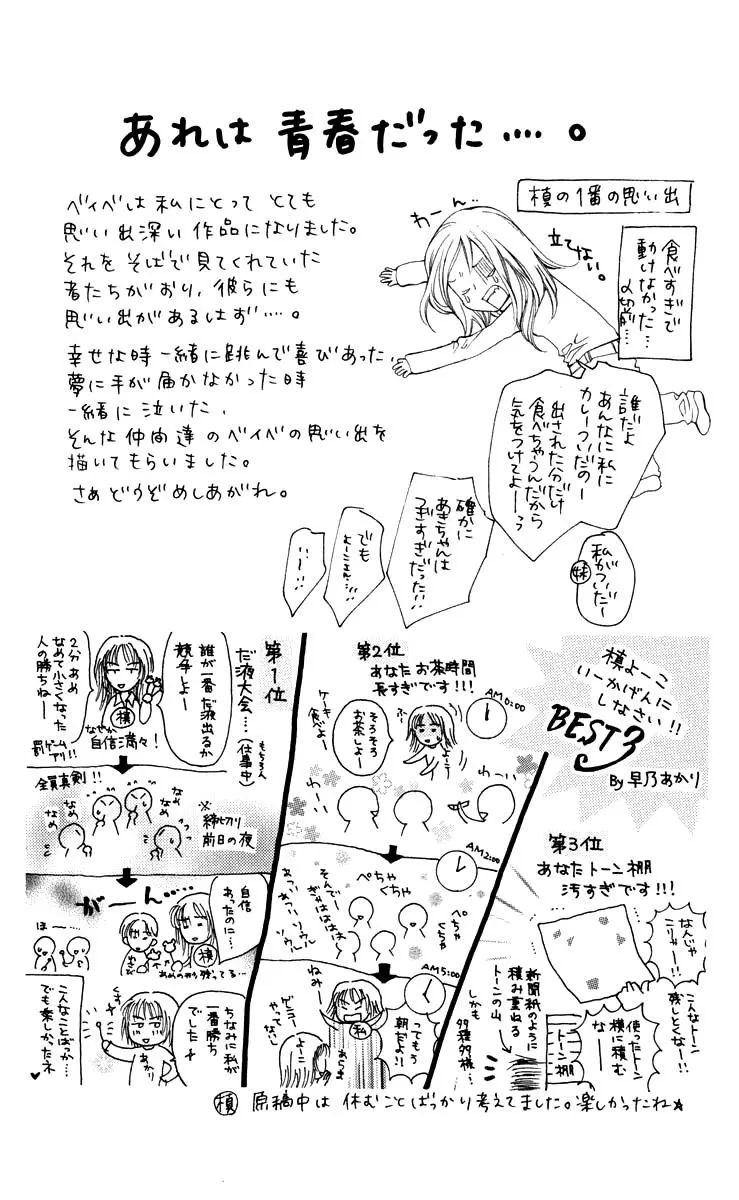 あれは 青春だった‥‥。
ベイベは 私にとって とても
思い出深い 作品になりました。
それを そばで見てくれていた
者たちがおり、彼らにも
思い出があるはず‥‥。
幸せな時 一緒に跳んで喜びあった、
夢に手が届かなかった時
一緒に泣いた、
そんな仲間達のベイベの思い出を
描いてもらいました。
さぁ どうぞ めしあがれ。
槙の1番の思い出
食べすぎで
動けなかった…
〆切前…
わーん。
立てない。
誰だよ
あんなに私に
カレーついだのー
出された分だけ
食べちゃうんだから
気をつけてよーっ
私がついだ〜
妹
確かに
あきちゃんは
つぎすぎだった!!
でも
よーこさん…!!
…!!
槙よーこ
いーかげんに
しなさい!!
BEST3
By 早乃あかり
第3位
あなたトーン棚
汚すぎです!!!
なんじゃ
こりゃー!!
こんなトーン
残しとくなー!!
新聞紙のように
積み重ねる
トーンの山
使ったトーン
横に積む
なー
トーン棚
しかも
多種多様…
第2位
あなたお茶時間
長すぎです!!!
AM0:00
そろそろ
お茶しよー
ケーキ
食べよー
わーい
わーい
AM2:00
ぺちゃ
くちゃ
ぺちゃ
くちゃ
そんでー
ぎゃはははは
AM5:00
ねみー
ってもう
朝だよ!!
私
よーこ
第1位
だ液大会…
(もちろん
仕事中)
誰が一番だ液出るか
競争しよー
2分あめ
なめて小さくなった
人の勝ちねー
槙
なぜか
自信満々!
罰ゲーム
アリ!!
全員真剣!!
なめ
なめ
なめ
なめ
なめ
なめ
※
締切り
前日の夜
がーん‥‥‥
自信
あったのに…
槙
あめのかけら残ってる…
ほー‥‥
ちなみに私が
一番勝ち
でした
あかり
こんなことばっか…
でも楽しかったネ♥
槙 原稿中は 休むことばっかり考えてました。楽しかったね☆